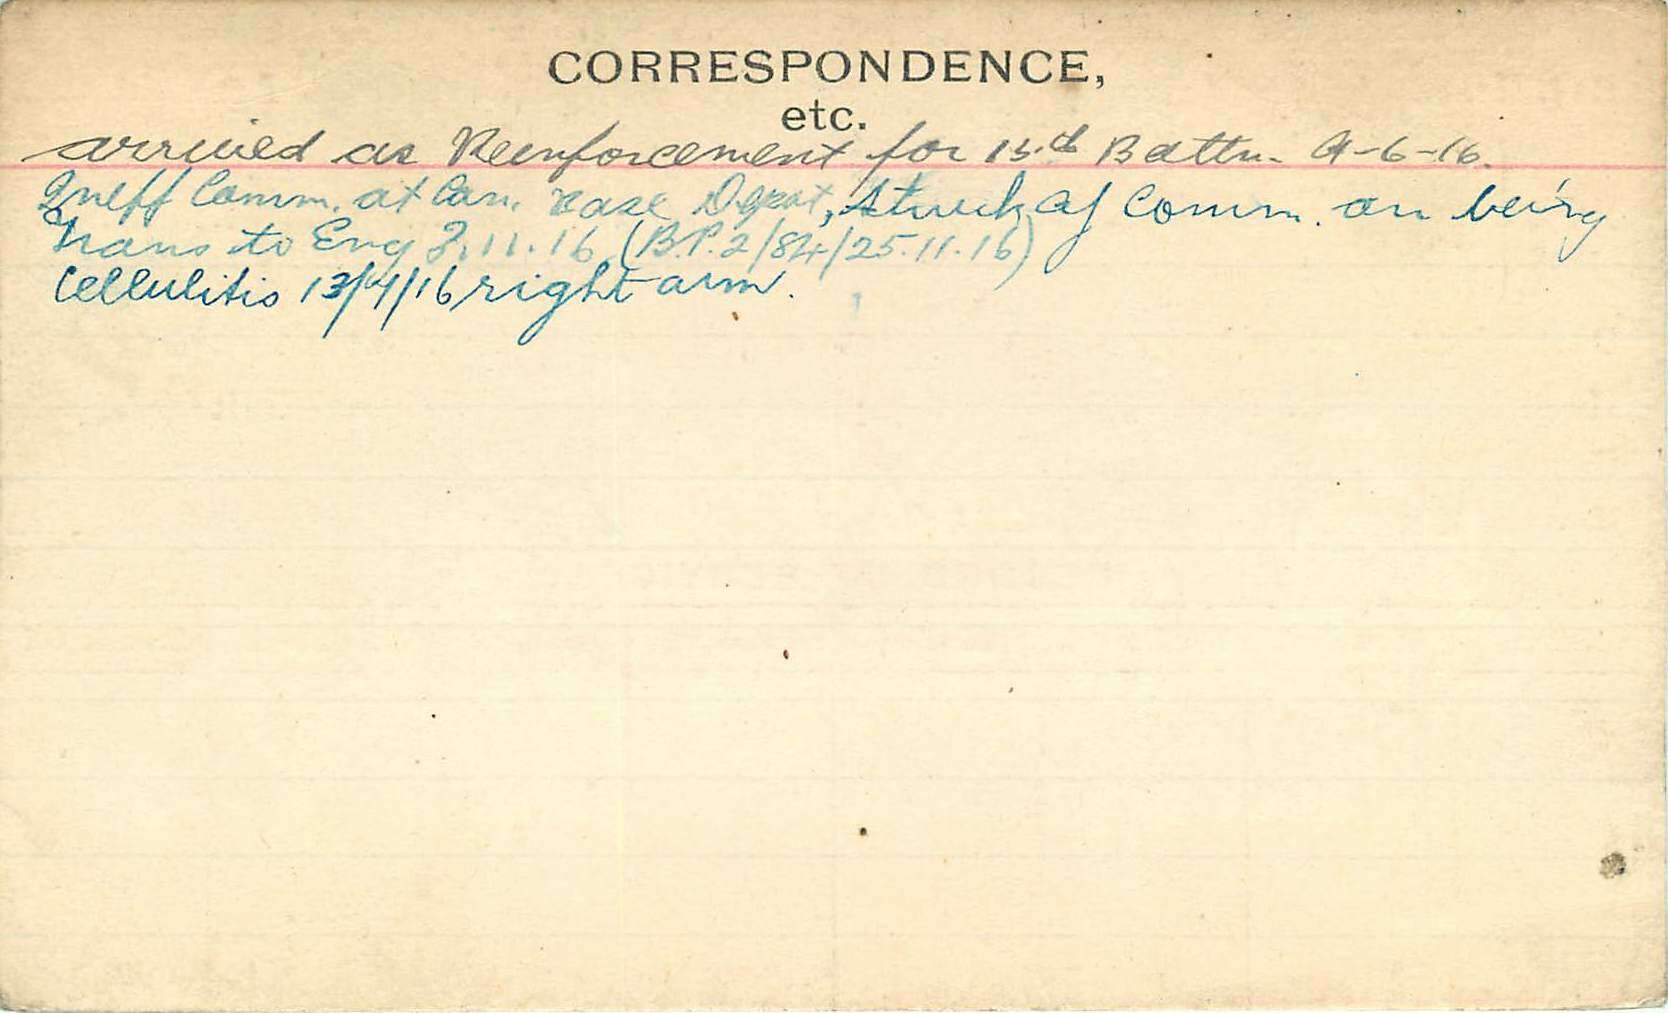 CORRESPONDENCE,
etc.
arrived as Reinforcement for 15th Battn. 9-6-16.
Ineff Comm. at Can. Base Depot, Struck of Comm. on being
Trans to Eng 3.11.16 (B.P.2/84/25.11.16)
Cellulitis 13/4/16 right arm.